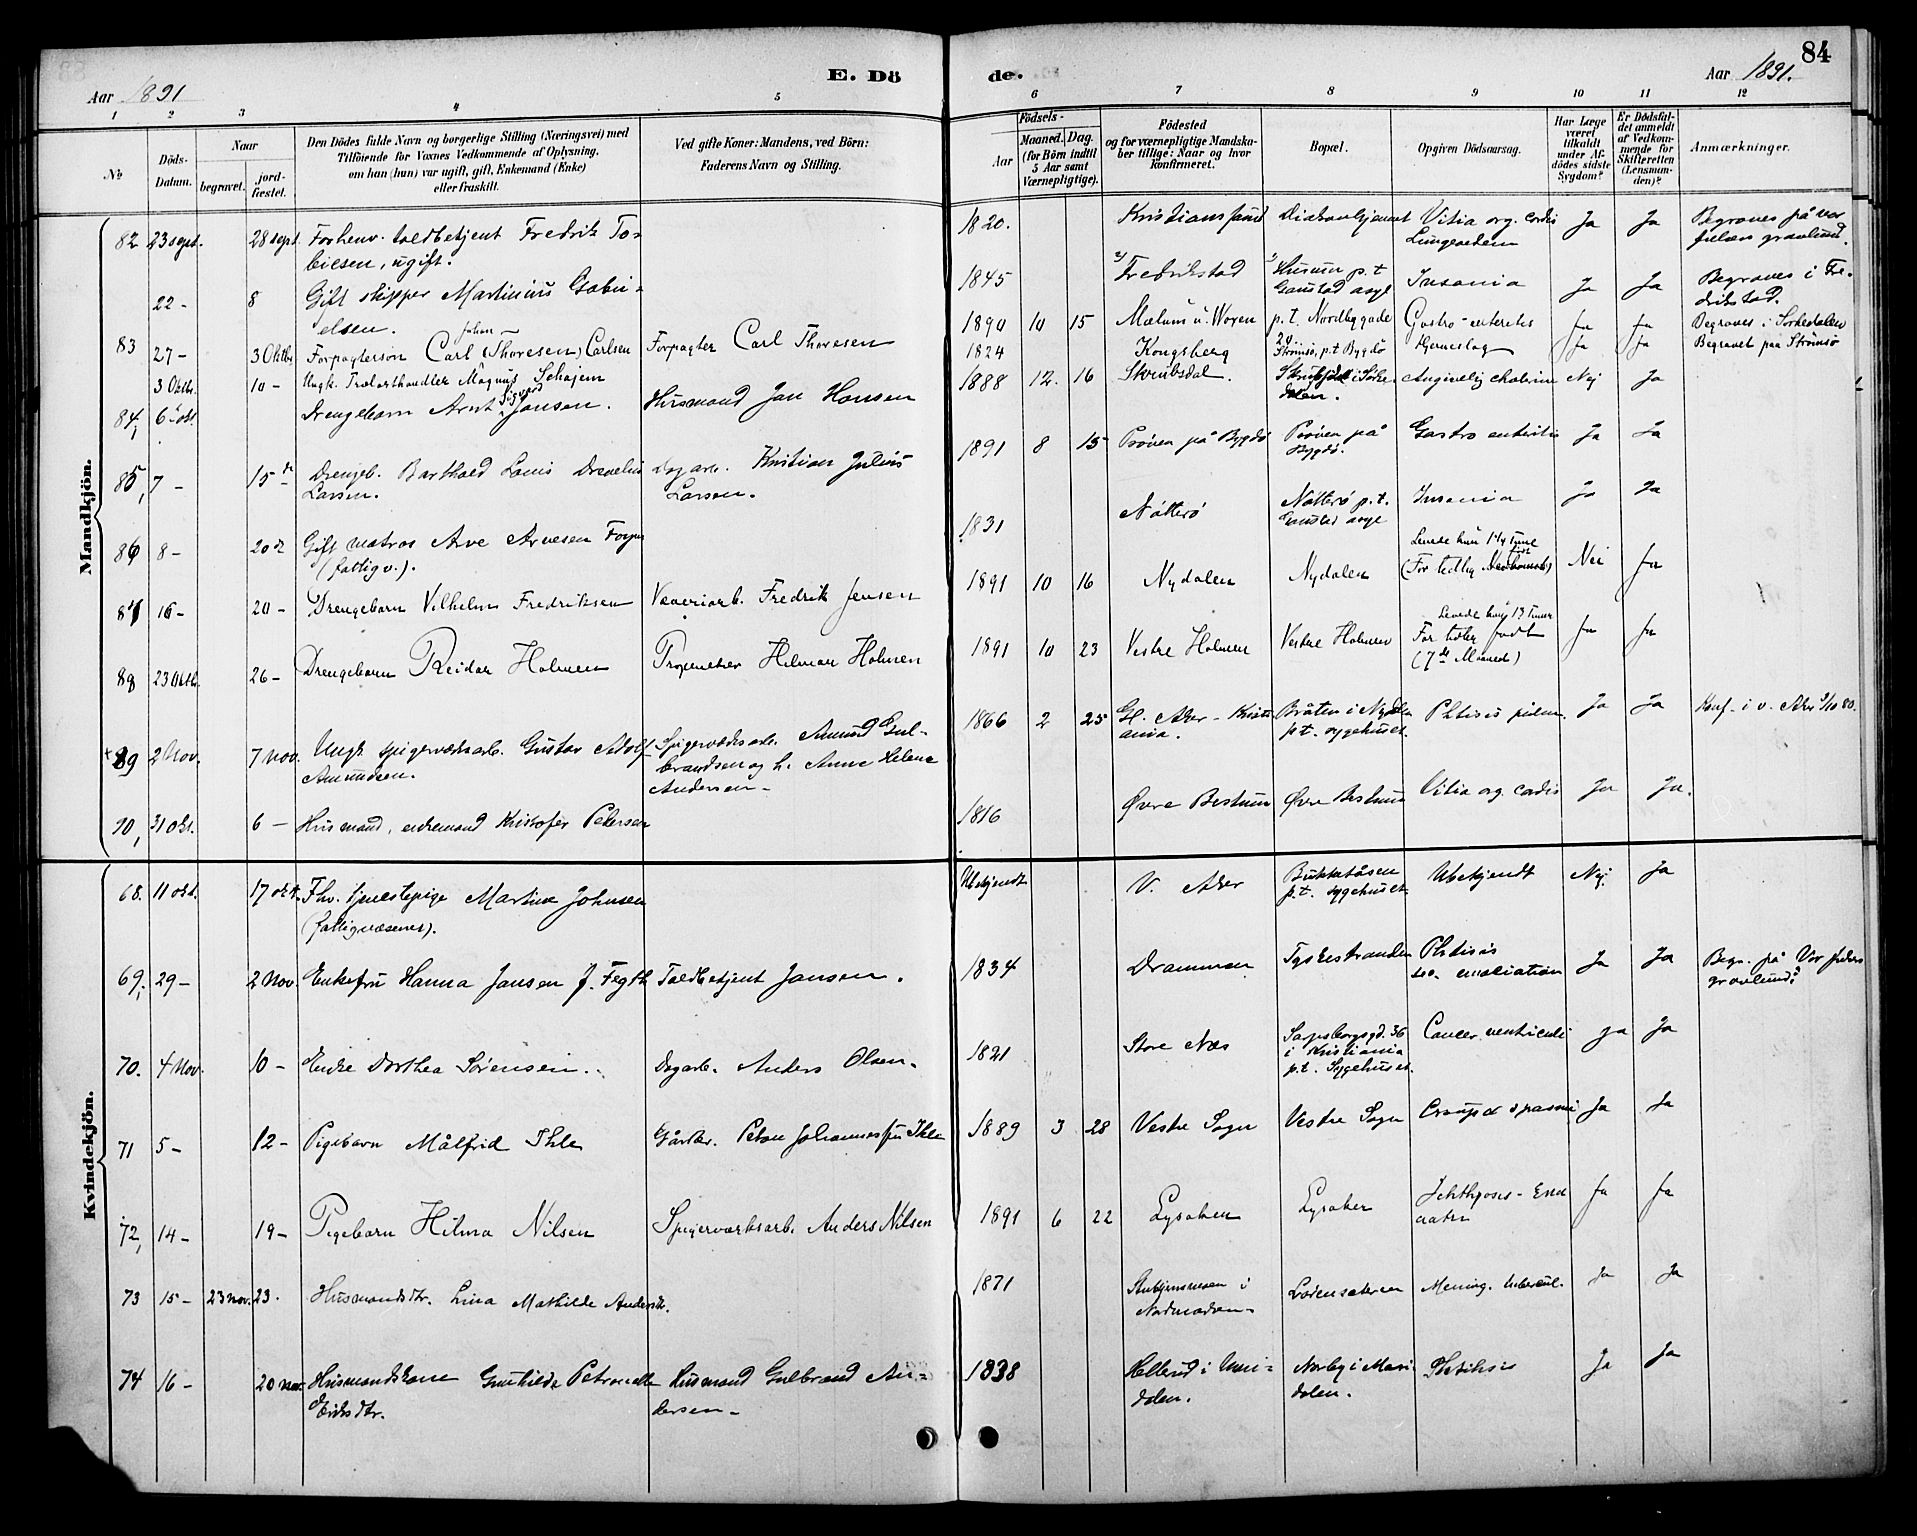 84
E. Döde.
Aar 1891
Aar 1891.
1 2 3 4 5 6 7 8 9 10 11 12
№
Döds-Datum.
Naar
begravet.
jordfæstet.
Den Dödes fulde Navn og borgerlige Stilling (Næringsvei) med
Tilföiende for Voxnes Vedkommende af Oplysning,
om han (hun) var ugift, gift, Enkemand (Enke)
eller fraskilt.
Ved gifte Koner: Mandens, ved Börn:
Faderens Navn og Stilling.
Födsels-
Aar
Maaned. Dag.
(for Börn indtil
5 Aar samt
Værnepligtige).
Födested
og for værnepligtige Mandskaber tillige: Naar og hvor
konfirmeret.
Bopæl.
Opgiven Dödsaarsag.
Har Læge
været
tilkaldt
under Afdödes sidste
Sygdom?
Er Dödsfaldet anmeldt
af Vedkommende for
Skifteretten
(Lensmanden)?
Anmærkninger.
Mandkjön.
82 23 sept. 28 sept. Forhenv. toldbetjent Fredrik Tobiesen, ugift. 1820. Kristianssund Diakonhjemmet Vitia org. cordis Lungeoedem Ja Ja Begraves på vor frelsers gravlund.
22 - 8 Gift skipper Martinius Gabrielsen. 1845 Fredrikstad Husum p.t. Gaustad asyl Insania Ja Ja Begraves i Fredrikstad.
83 27 - 3 Oktbr Forpagterson Carl Johan (Thoresen) Carlsen Forpagter Carl Thoresen 1890 10 15 Mælum i Woxen p.t. Nordbygade Gastro-enteritis Ja Ja Begraves i Sørkedalen
3 Oktbr. 10 - Ungk. Trælasthandler Magnus Schøjem 1824 Kongsberg Strømsö, p.t. Bygdø Hjerneslag Ja Ja Begravet paa Strömsö
84, 6 okt. Drengebarn Arnt Sigvard Jansen. Husmand Jan Hansen 1888 12. 16 Skrubsdal. i Sørkedalen. Angivelig cholerine Nej Ja
85, 7 - 15 de Drengeb. Barthold Louis Larsen. Dagarb. Kristian Julius Larsen. 1891 8 15 Prøven på Bygdø Prøven på Bygdø. Gastro enteritis Ja Ja
86 8 - 20 de Gift matros Arve Arvesen (fattigv.). 1831 Nötterö Nötterö p.t. Gaustad asyl Insania Ja Ja
87 16 - 20 - Drengebarn Vilhelm Fredriksen Væveriarb. Fredrik Jensen 1891 10 16 Nydalen Nydalen Levede kun 1 1/4 Time (For tidlig Nei Ja
88 23 Oktb. 26 - Drengebarn Reidar Holmen Proprietær Hilmar Holmen 1891 10 23 Vestre Holmen Vestre Holmen Levede kun 13 Timer For tidlig født (7de Maaned) Ja Ja
89 2 Nov. 7 nov. Ungk. spigerværksarb. Gustav Adolf Amundsen. Spigerværksarb. Amund Gulbrandsen og h. Anne Helene Andersen - 1866 2 25 Gl. Aker - Kristiania. Bråten i Nydalen p.t. sygehuset. Phtisis pulm. Ja Ja Konf. i v. Aker 3/10 80.
90, 31 okt. 6 - Husmand, enkemand Kristofer Petersen 1816 Øvre Bestum Øvre Bestum Vitia org. cordis Ja Ja.
Kvindekjön.
68. 11 okt. 17 okt. Fhv. tjenestepige Martine Johnsen (fattigvæsenet). Ubekjendt V. Aker Bukketåsen p.t. sygehuset Ubekjendt Nej. Ja
69, 29 - 2 Nov. Enkefru Hanna Jansen f. Fegth Toldbetjent Jansen. 1834 Drammen Tyskestranden Phtisis emaciation Ja Ja Begr. på Vor frelsers gravlund?
70. 4 Nov. 10 - Enke Dorthea Sørensen. Dagarb. Anders Olsen. 1821 Store Næs Sarpsborggd. 36 i Kristiania p.t. Sygehuset. Cancer ventriculi Ja Ja
71 5 - 12 - Pigebarn Målfrid Ihle Gårdbr. Peter Johannessen Ihle 1889 3 28 Vestre Sogn Vestre Sogn Croup & spasmi Ja Ja
72, 14 - 19 - Pigebarn Hilma Nilsen Spigerværksarb. Anders Nilsen 1891 6 22 Lysaker Lysaker Ichthyosis - Ja Ja
73 15 - 23 nov. 23. Husmandsdtr. Lina Mathilde Andersdr. 1871 i Nordmarken - Mening. tubercul. Ja Ja
74 16 - 20 nov. Husmandskone Gunhilde Petronelle Eriksdtr. Husmand Gulbrand Andersen - 1838 Hellerud i Maridalen. Norby i Maridalen. Phtisis Ja Ja